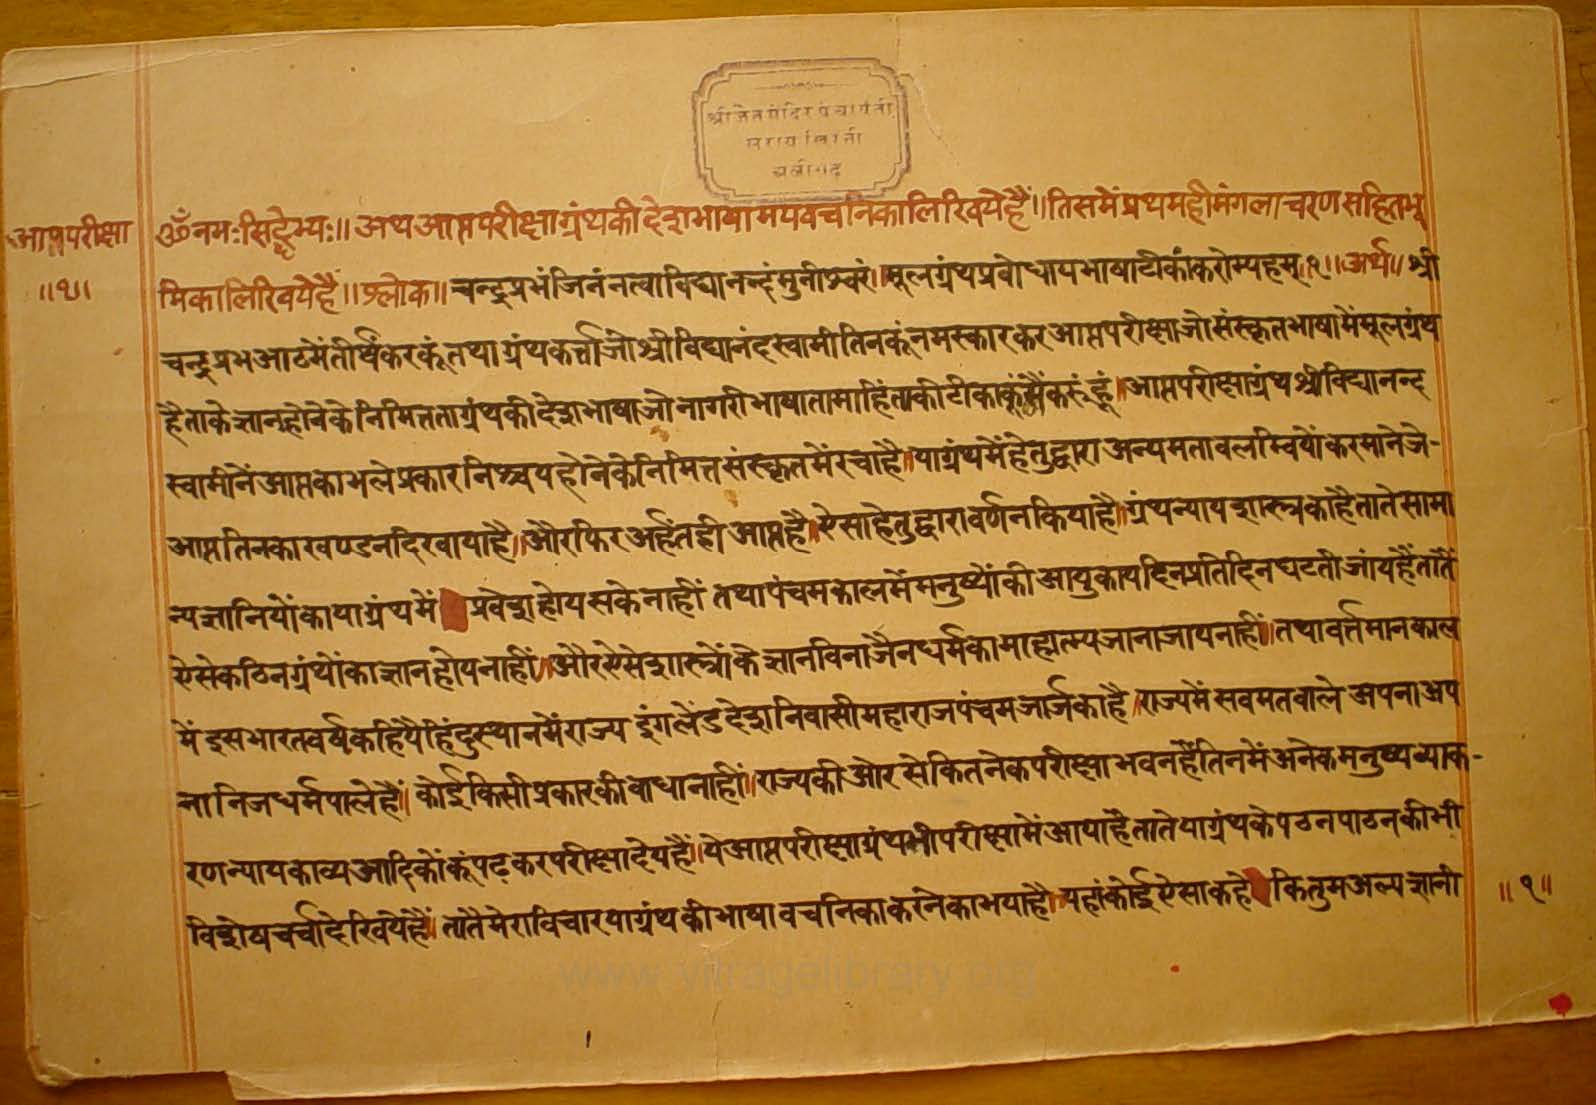 श्रीजैनमंदिरपंचायती
सरायखिरनी
अलीगढ़
आप्तपरीक्षा
॥१॥
ॐनमःसिद्धेभ्यः॥ अथ आप्तपरीक्षाग्रंथकीदेशभाषामयवचनिकालिखियेहैं॥ तिसमेंप्रथमहीमंगलाचरणसहितभू
मिकालिखियेहैं॥ श्लोक॥ चन्द्रप्रभंजिनंनत्वाविद्यानन्दंमुनीश्वरं॥ मूलग्रंथप्रबोधायभाषाटीकांकरोम्यहम्॥१॥ अर्थ॥ श्री
चन्द्रप्रभआठमेंतीर्थंकरकूंतथाग्रंथकर्त्ताजोश्रीविद्यानंदस्वामीतिनकूंनमस्कारकरआप्तपरीक्षाजोसंस्कृतभाषामेंमूलग्रंथ
हैताकेज्ञानहोवेकेनिमित्तताग्रंथकीदेशभाषाजोनागरीभाषातामाहिंताकीटीकाकूंमैंकरूंहूं॥ आप्तपरीक्षाग्रंथश्रीविद्यानन्द
स्वामीनेंआप्तकाभलेप्रकारनिश्चयहोनेकेनिमित्तसंस्कृतमेंरचाहै॥ याग्रंथमेंहेतुद्वाराअन्यमतावलम्बियोंकरमानेजे-
आप्ततिनकाखण्डनदिखायाहै॥ औरफिरअर्हंतहीआप्तहै॥ ऐसाहेतुद्वारावर्णनकियाहै॥ ग्रंथन्यायशास्त्रकाहैतातेसामा
न्यज्ञानियोंकायाग्रंथमें प्रवेशहोयसकेनाहीं तथापंचमकालमेंमनुष्योंकीआयुकायदिनप्रतिदिनघटतीजांयहैंतातैं
ऐसेकठिनग्रंथोंकाज्ञानहोयनाहीं॥ औरऐसेशास्त्रोंकेज्ञानविनाजैनधर्मकामाहात्म्यजानाजायनाहीं॥ तथावर्त्तमानकाल
मेंइसभारतवर्षकहियैहिंदुस्थानमेंराज्य इंगलेंडदेशनिवासीमहाराजपंचमजार्जकाहै॥ राज्यमेंसवमतवाले अपनाअप
नानिजधर्मपालेहैं॥ कोईकिसीप्रकारकीबाधानाहीं॥ राज्यकीओरसेकितनेकपरीक्षाभवनहैंतिनमेंअनेकमनुष्यव्याक-
रणन्यायकाव्यआदिकोंकूंपढ़करपरीक्षादेयहैं॥ येआप्तपरीक्षाग्रंथभीपरीक्षामेंआयाहैतातेयाग्रंथकेपठनपाठनकीभी
विशेषचर्चादेखियेहैं॥ तातैमेराविचारयाग्रंथकीभाषावचनिकाकरनेकाभयाहै॥ यहांकोईऐसाकहे कितुमअल्पज्ञानी
॥१॥
www.vitragelibrary.org